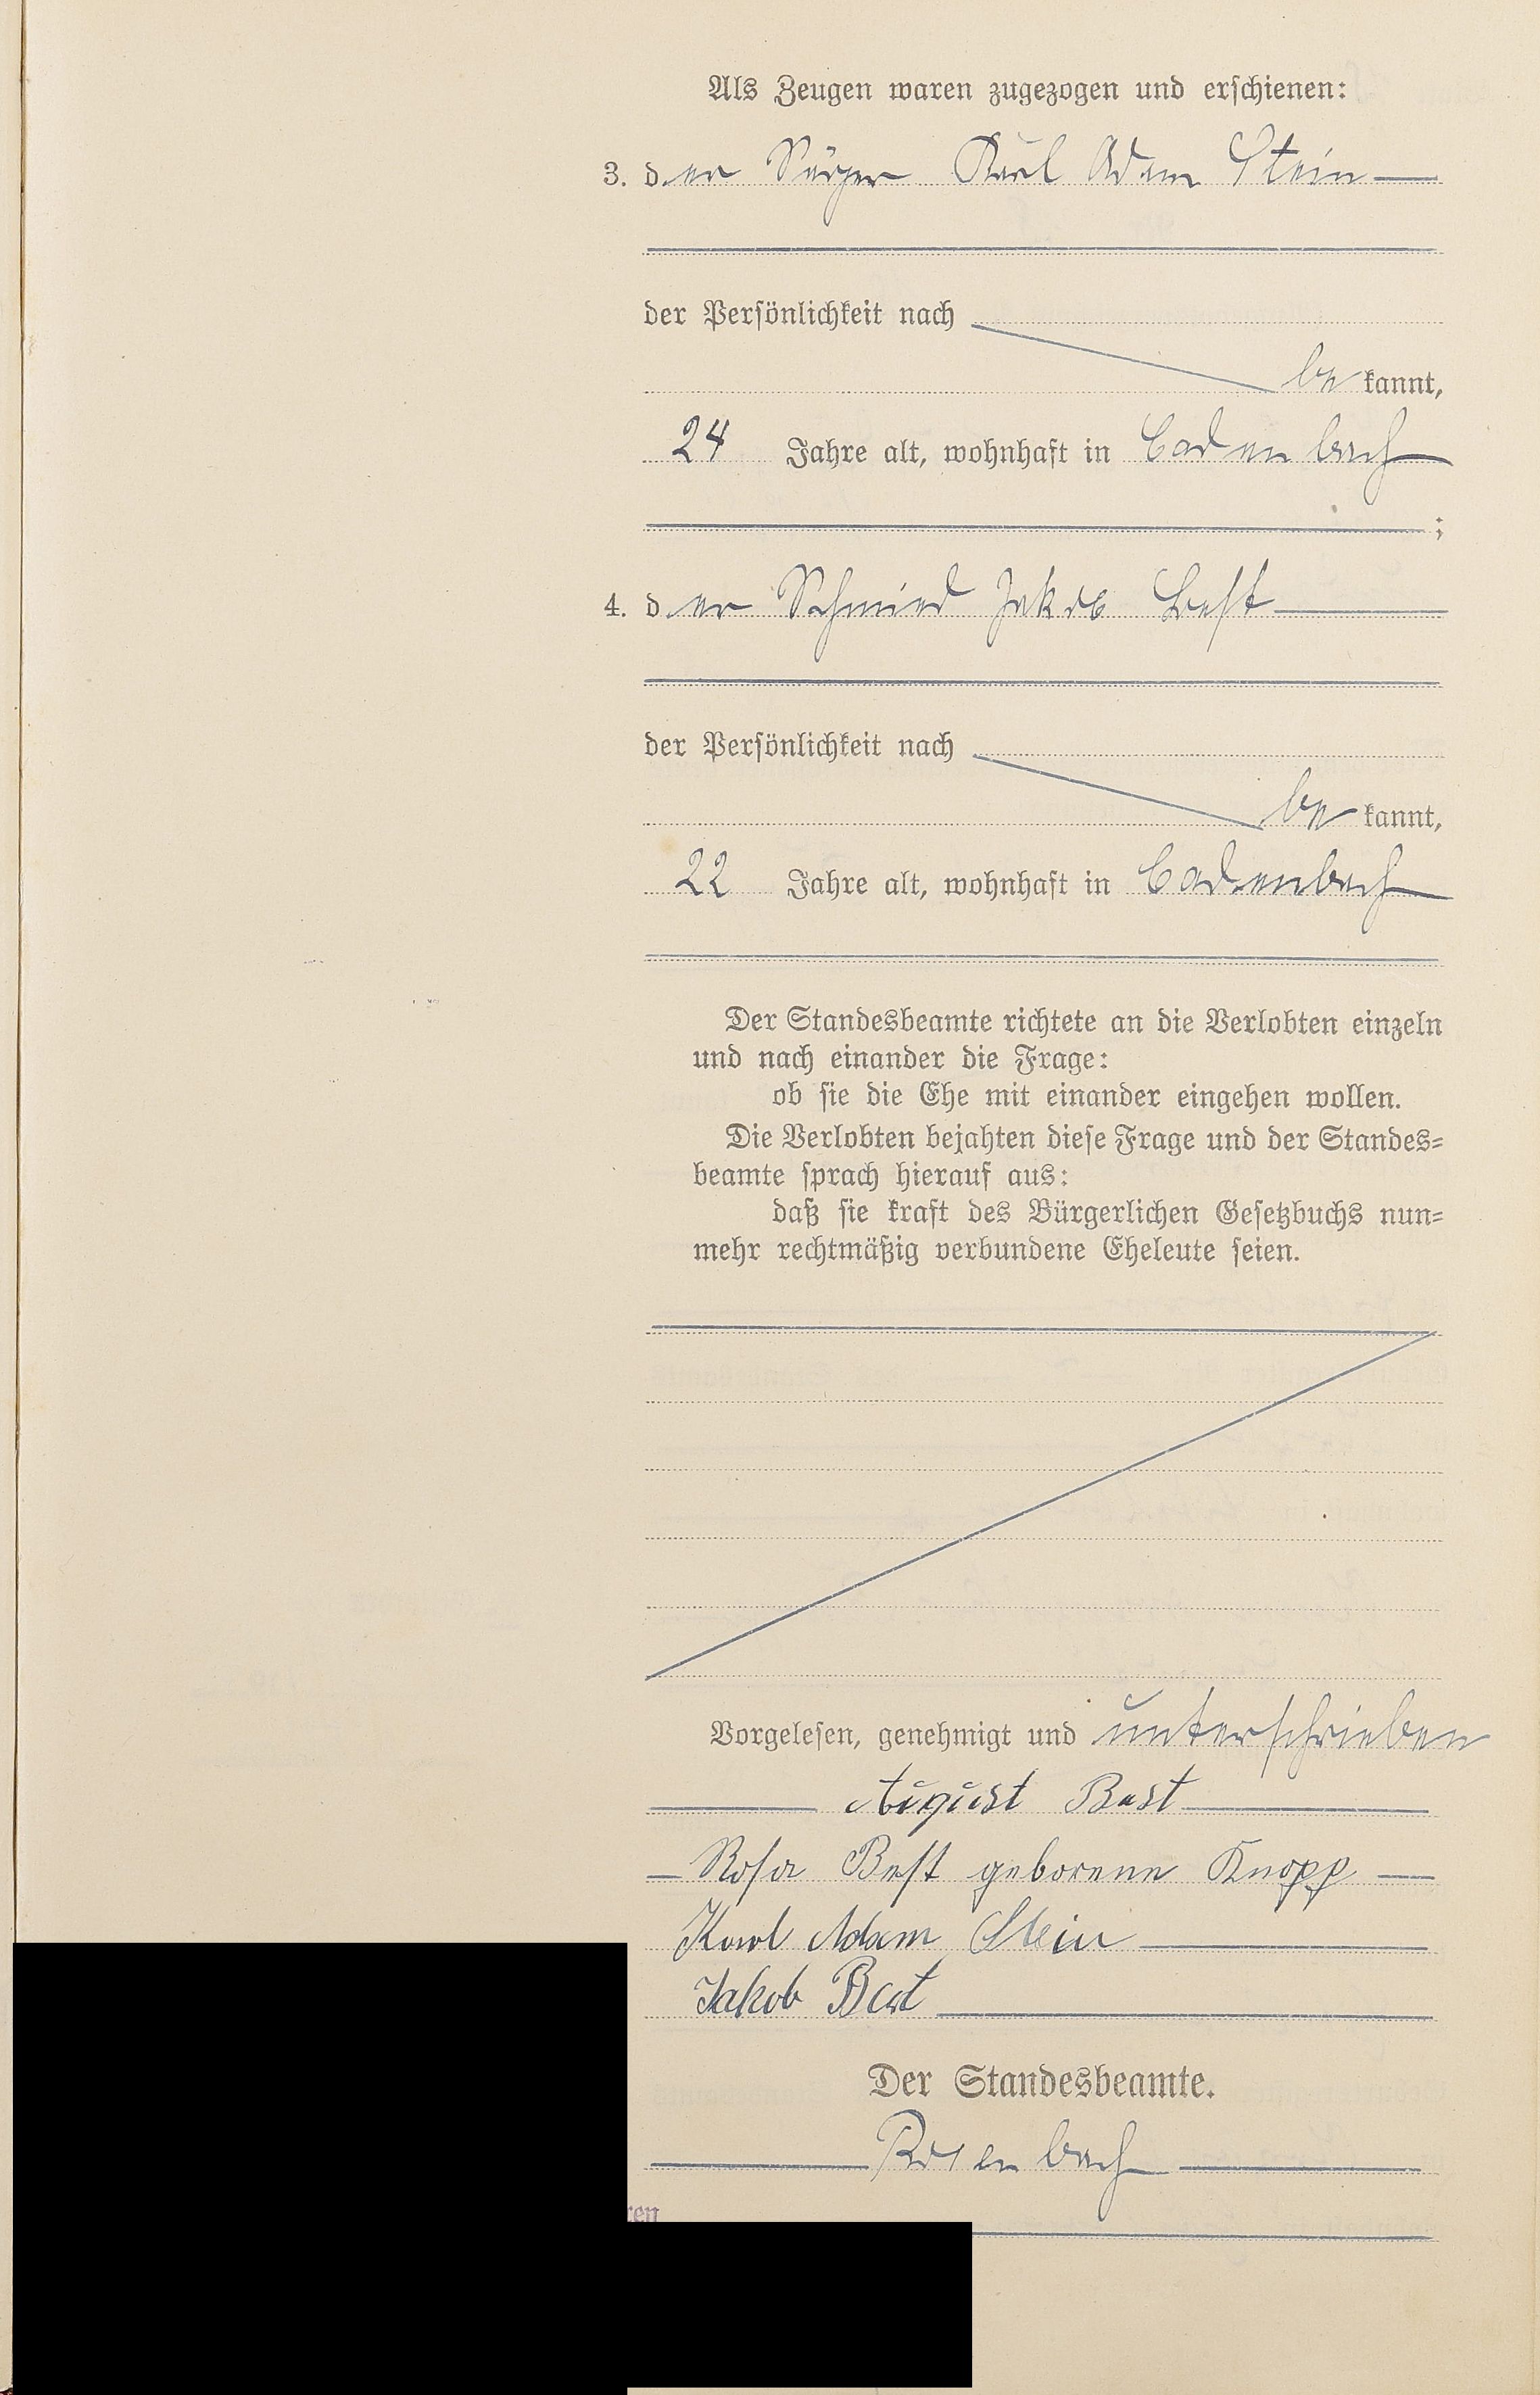 Als Zeugen waren zugezogen und erschienen:
3. der Säger Karl Adam Stein
der Persönlichkeit nach
be kannt,
24 Jahre alt, wohnhaft in Cadenbach
;
4. der Schmied Jakob Best
der Persönlichkeit nach
be kannt,
22 Jahre alt, wohnhaft in Cadenbach
Der Standesbeamte richtete an die Verlobten einzeln
und nach einander die Frage:
ob sie die Ehe mit einander eingehen wollen.
Die Verlobten bejahten diese Frage und der Standes=
beamte sprach hierauf aus:
daß sie kraft des Bürgerlichen Gesetzbuchs nun=
mehr rechtmäßig verbundene Eheleute seien.
Vorgelesen, genehmigt und unterschrieben
August Best
Rosa Best geborene Knopp
Karl Adam Stein
Jakob Best
Der Standesbeamte.
Rosenbach